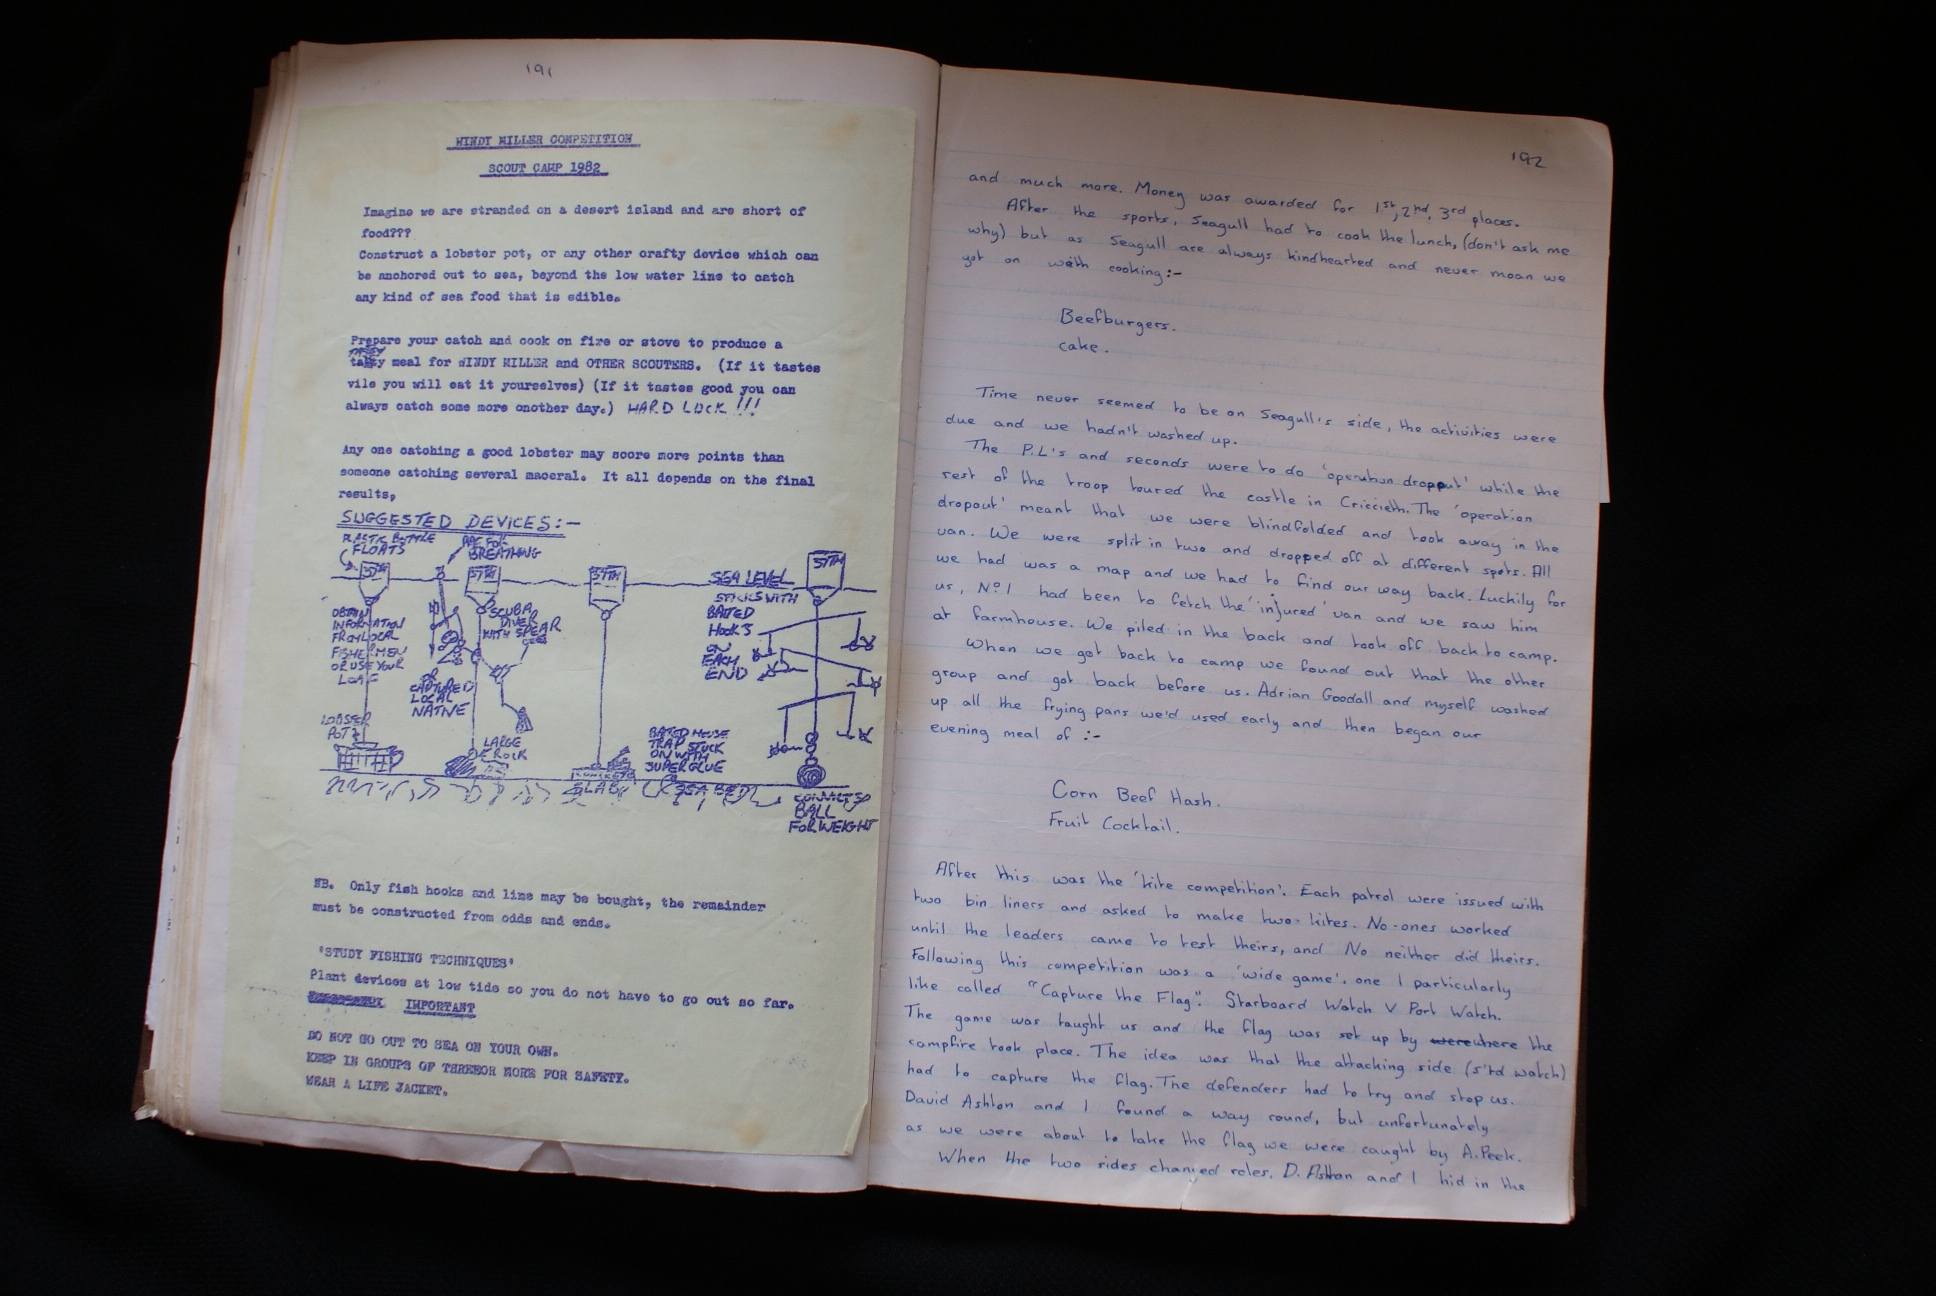 191
WINDY MILLER COMPETITION
SCOUT CAMP 1982
Imagine we are stranded on a desert island and are short of
food???
Construct a lobster pot, or any other crafty device which can
be anchored out to sea, beyond the low water line to catch
any kind of sea food that is edible.
Prepare your catch and cook on fire or stove to produce a
tasty meal for WINDY MILLER and OTHER SCOUTERS. (If it tastes
vile you will eat it yourselves) (If it tastes good you can
always catch some more onother day.) HARD LUCK !!!
Any one catching a good lobster may score more points than
someone catching several maceral. It all depends on the final
results,
SUGGESTED DEVICES:-
PLASTIC BOTTLE
FLOATS
PIPE FOR
BREATHING
37TH
37TH
37TH
37TH
SEA LEVEL
OBTAIN
INFORMATION
FROM LOCAL
FISHERMEN
OR USE YOUR
LOAF
SCUBA
DIVER
WITH SPEAR
OR
CAPTURED
LOCAL
NATIVE
STICKS WITH
BAITED
HOOKS
ON
EACH
END
LOBSTER
POT
LARGE
ROCK
CONCRETE
SLAB
BATED MOUSE
TRAP STUCK
ON WITH
SUPERGLUE
SEA BED
BALL
FOR WEIGHT
NB. Only fish hooks and line may be bought, the remainder
must be constructed from odds and ends.
'STUDY FISHING TECHNIQUES'
Plant devices at low tide so you do not have to go out so far.
IMPORTANT
DO NOT GO OUT TO SEA ON YOUR OWN.
KEEP IN GROUPS OF THREEOR MORE FOR SAFETY.
WEAR A LIFE JACKET.
192
and much more. Money was awarded for 1st, 2nd, 3rd places.
After the sports, Seagull had to cook the lunch, (don't ask me
why) but as Seagull are always kindhearted and never moan we
got on with cooking:-
Beefburgers.
cake.
Time never seemed to be on Seagull's side, the activities were
due and we hadn't washed up.
The P.L's and seconds were to do 'operation dropout' while the
rest of the troop toured the castle in Criccieth. The 'operation
dropout' meant that we were blindfolded and took away in the
van. We were split in two and dropped off at different spots. All
we had was a map and we had to find our way back. Luckily for
us, No 1 had been to fetch the 'injured' van and we saw him
at farmhouse. We piled in the back and took off back to camp.
When we got back to camp we found out that the other
group and got back before us. Adrian Goodall and myself washed
up all the frying pans we'd used early and then began our
evening meal of :-
Corn Beef Hash.
Fruit Cocktail.
After this was the 'kite competition'. Each patrol were issued with
two bin liners and asked to make two kites. No-ones worked
until the leaders came to test theirs, and No neither did theirs.
Following this competition was a 'wide game'. one I particularly
like called "Capture the Flag". Starboard Watch V Port Watch.
The game was taught us and the flag was set up by were where the
campfire took place. The idea was that the attacking side (s'td watch)
had to capture the flag. The defenders had to try and stop us.
David Ashton and I found a way round, but unfortunately
as we were about to take the flag we were caught by A.Peek.
When the two sides changed roles. D. Ashton and I hid in the